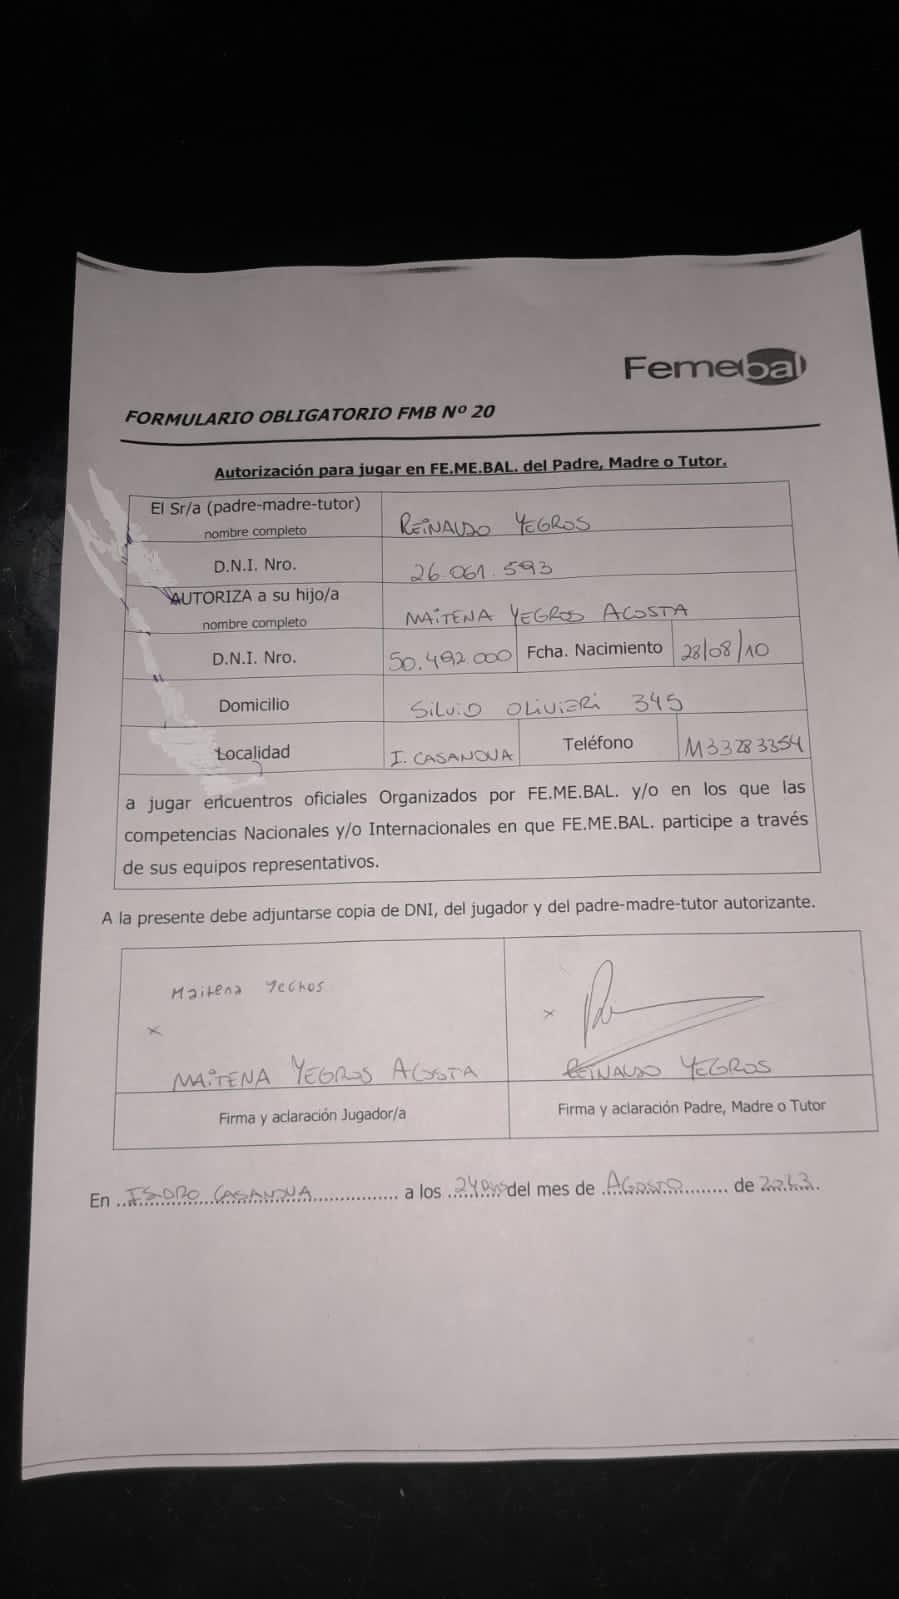 Femebal
FORMULARIO OBLIGATORIO FMB Nº 20
Autorización para jugar en FE.ME.BAL. del Padre, Madre o Tutor.
El Sr/a (padre-madre-tutor)
nombre completo
REINALDO YEGROS
D.N.I. Nro.
26.061.593
AUTORIZA a su hijo/a
nombre completo
MAITENA YEGROS ACOSTA
D.N.I. Nro.
50.492.000
Fcha. Nacimiento
28/08/10
Domicilio
SILVIO OLIVIERI 345
Localidad
I. CASANOVA
Teléfono
1133283354
a jugar encuentros oficiales Organizados por FE.ME.BAL. y/o en los que las
competencias Nacionales y/o Internacionales en que FE.ME.BAL. participe a través
de sus equipos representativos.
A la presente debe adjuntarse copia de DNI, del jugador y del padre-madre-tutor autorizante.
Maitena
x
MAITENA YEGROS ACOSTA
Firma y aclaración Jugador/a
x
REINALDO YEGROS
Firma y aclaración Padre, Madre o Tutor
En ISIDRO CASANOVA a los 24 del mes de AGOSTO de 2023.